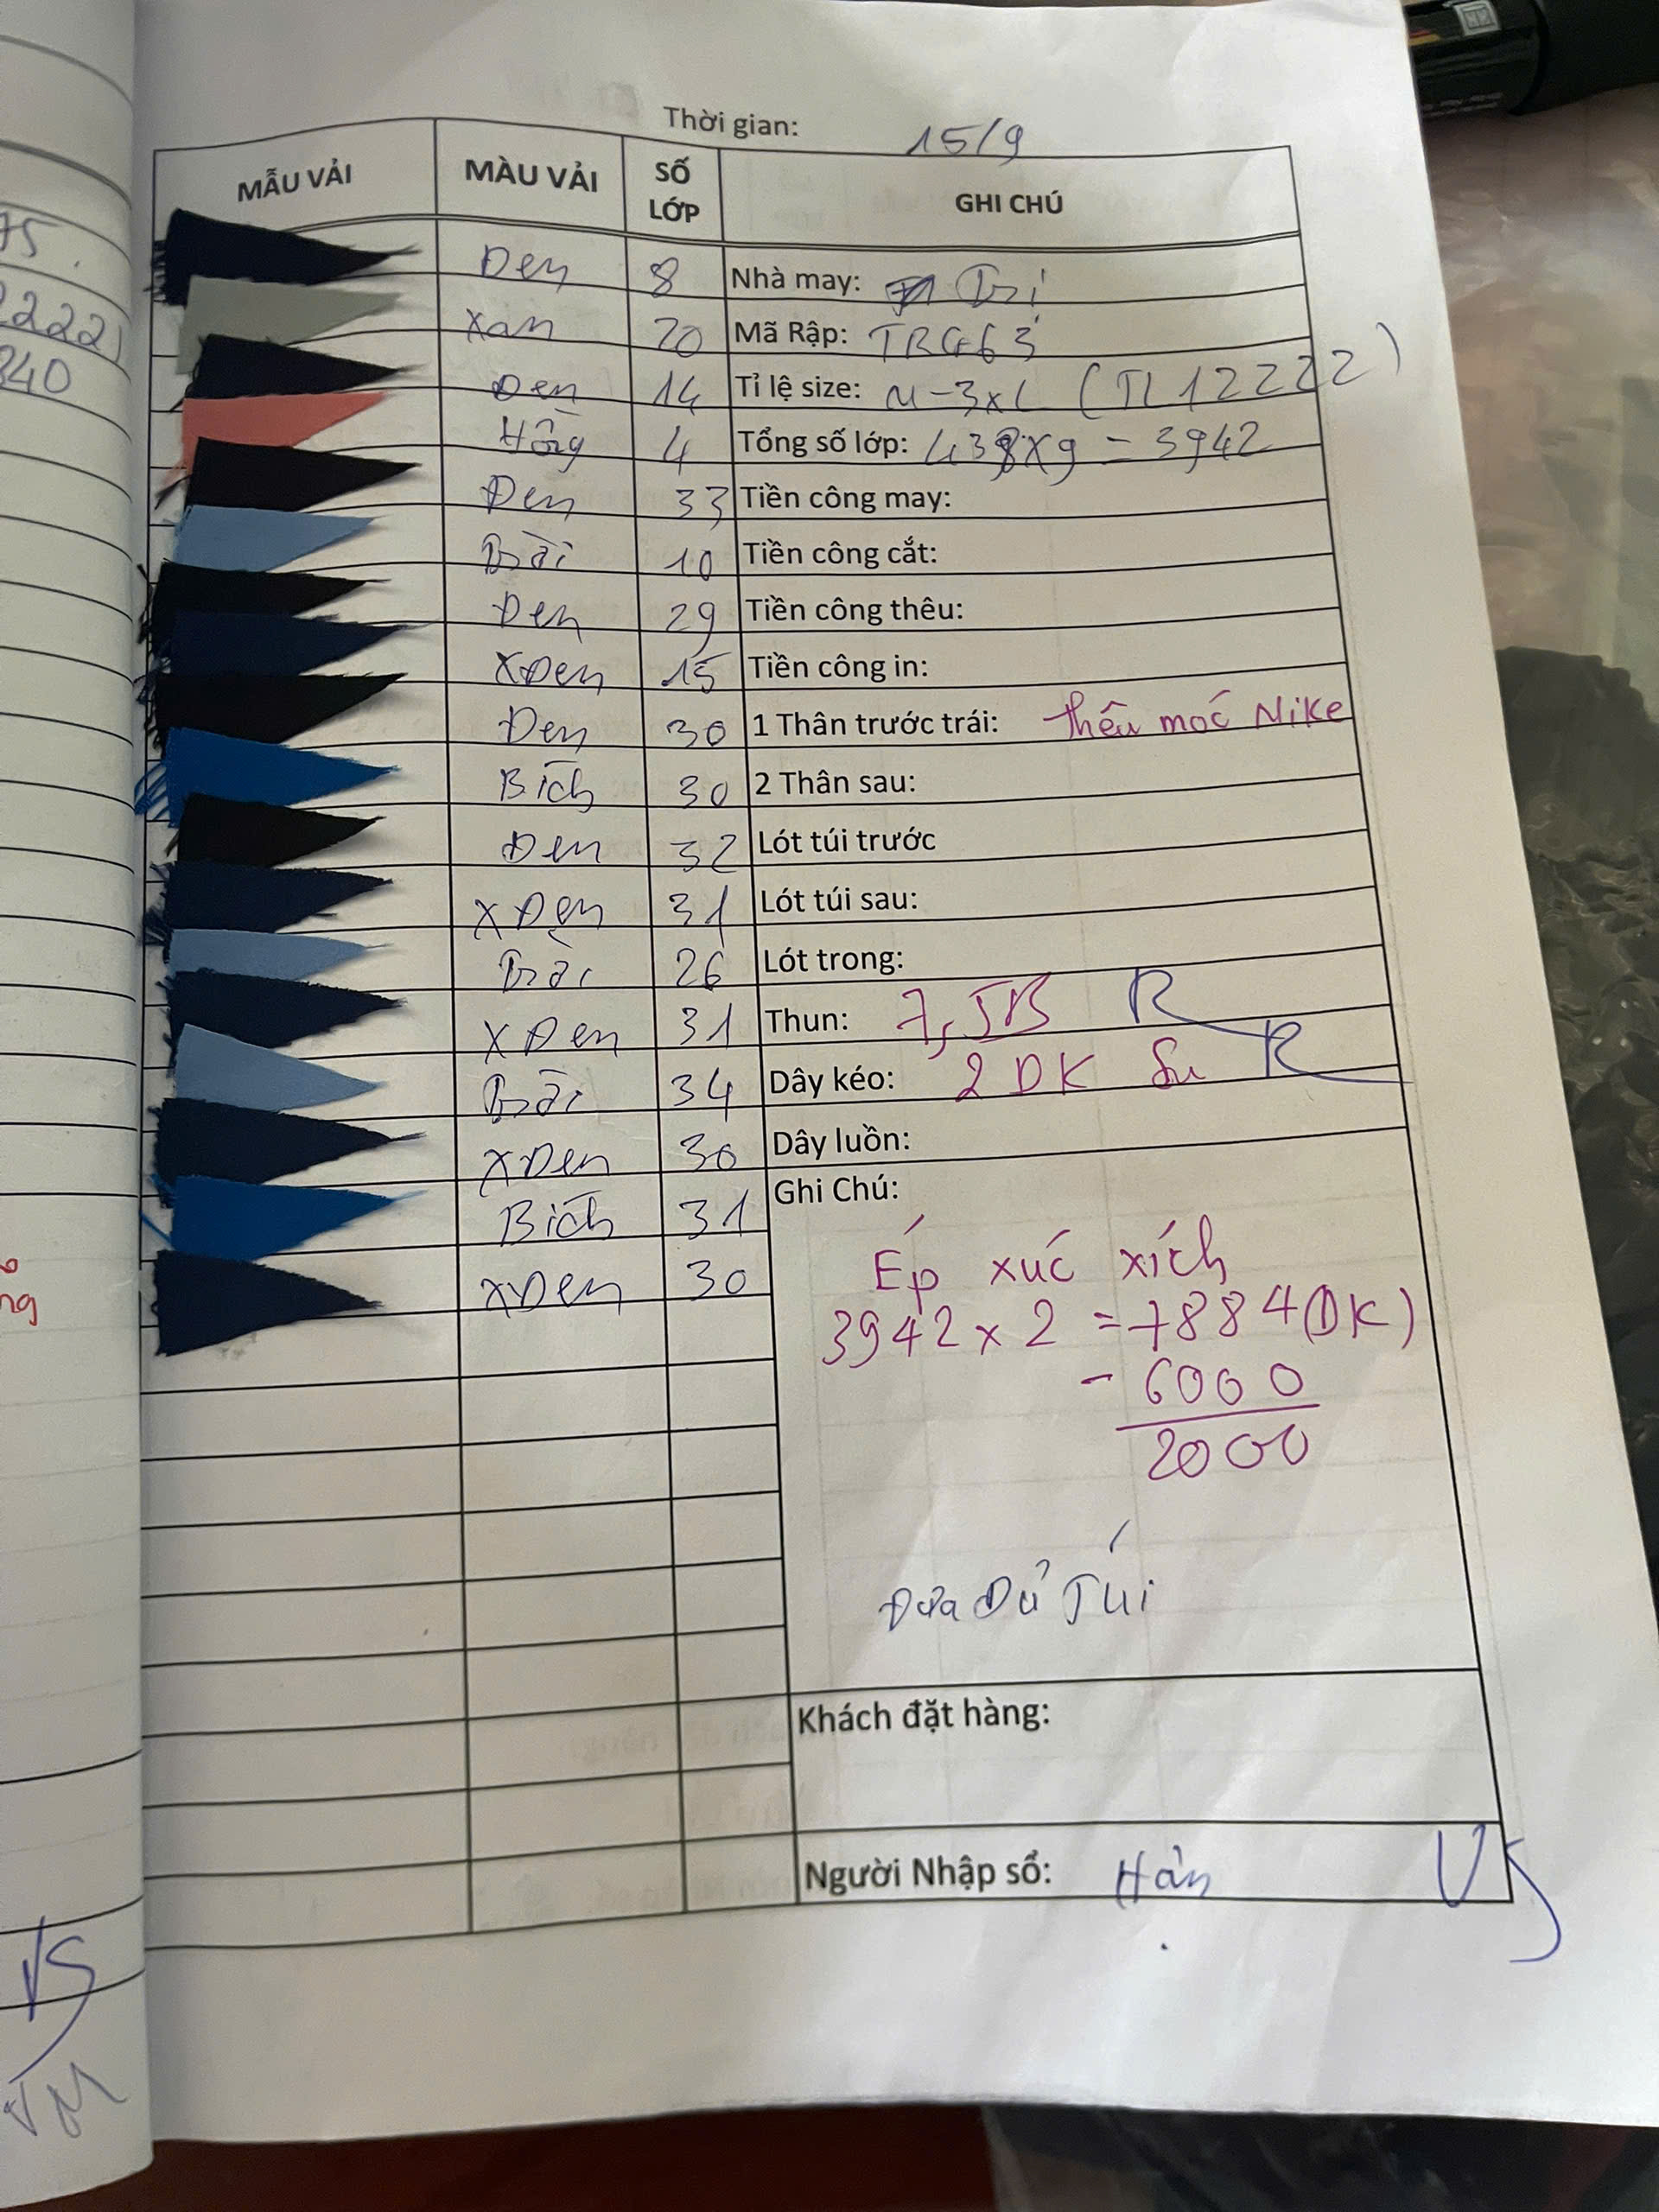 Thời gian: 15/9
MẪU VẢI MÀU VẢI SỐ LỚP GHI CHÚ
Đen 8 Nhà may:
Xám 20 Mã Rập: TRG63
Đen 14 Tỉ lệ size: M-3XL (TL12222)
Hồng 4 Tổng số lớp: 438x9 = 3942
Đen 33 Tiền công may:
10 Tiền công cắt:
Đen 29 Tiền công thêu:
XĐen 15 Tiền công in:
Đen 30 1 Thân trước trái: thêu moć Nike
Bích 30 2 Thân sau:
Đen 32 Lót túi trước
XĐen 31 Lót túi sau:
26 Lót trong:
XĐen 31 Thun: 7,5B R
34 Dây kéo: 2 DK R
XĐen 30 Dây luồn:
Bích 31 Ghi Chú:
XĐen 30
Ép xúc xích
3942 x 2 = 7884 (DK)
- 6000
2000
Đưa Đủ Túi
Khách đặt hàng:
Người Nhập sổ: Hân
75.
2222)
340
ng